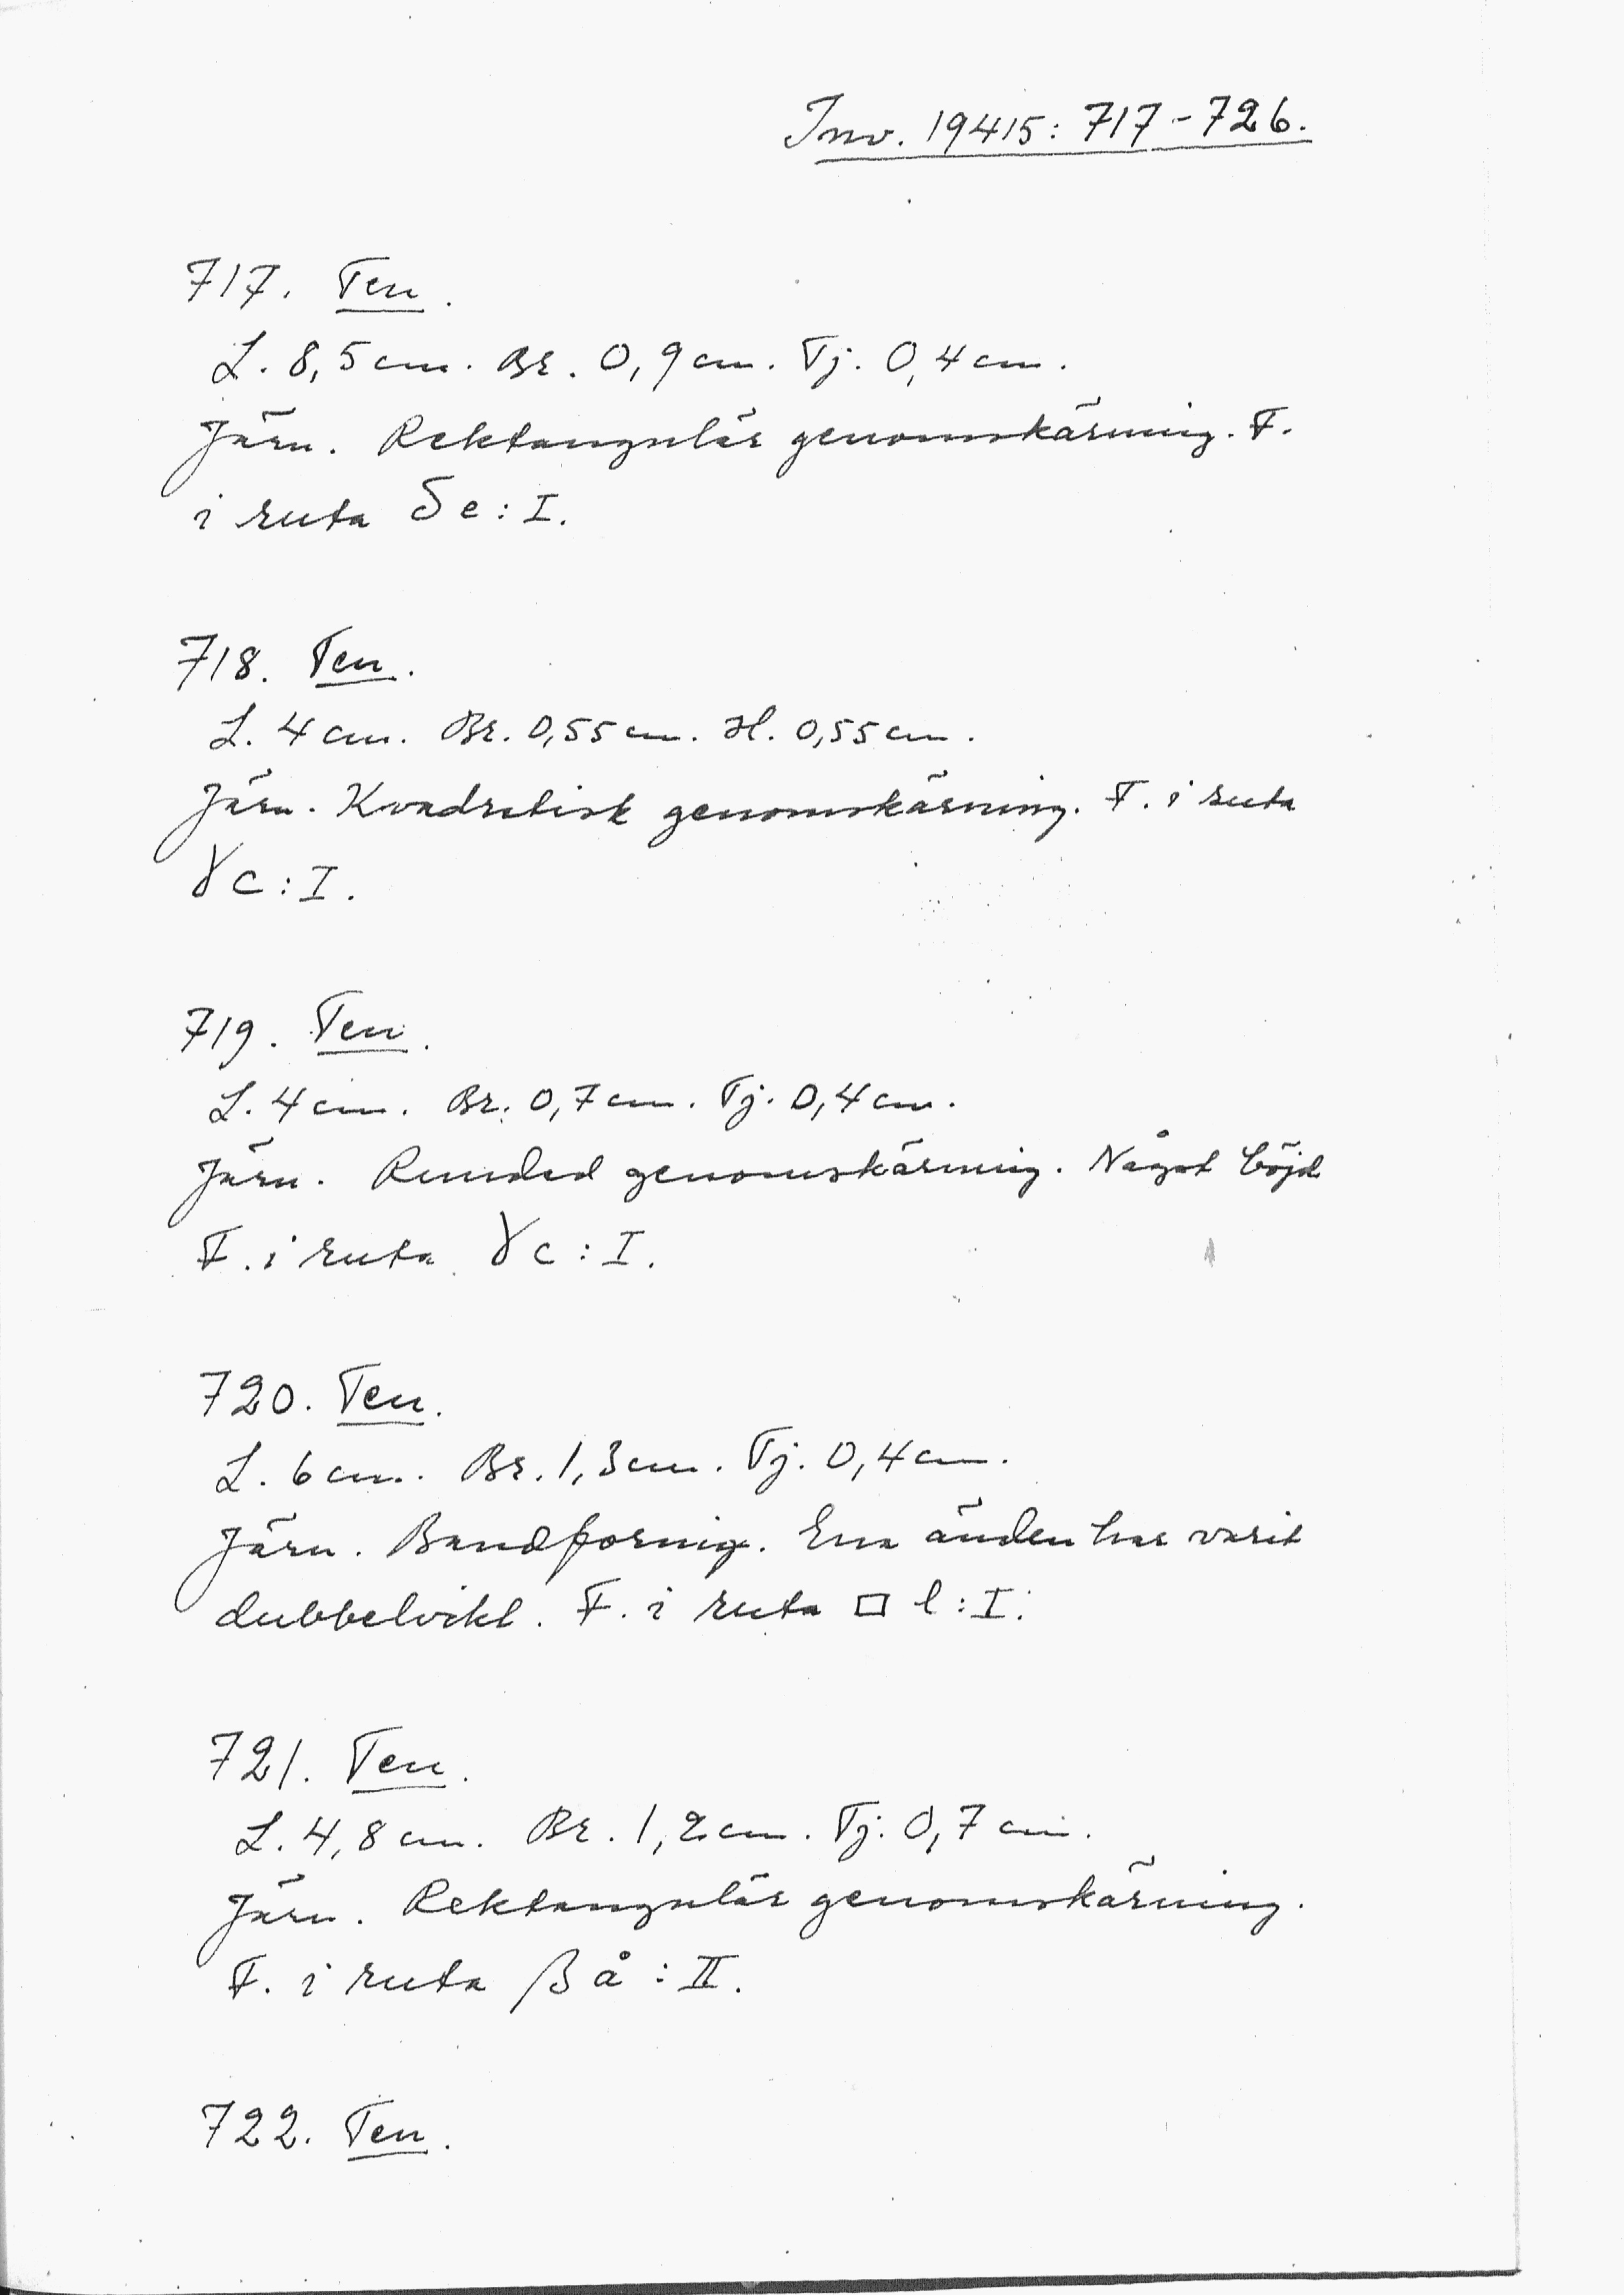 Inv. 19415: 717-726.
717. Ten.
L. 8,5 cm. Br. 0,9 cm. Tj. 0,4 cm.
Järn. Rektangulär genomskärning. F.
i ruta δe: I.
718. Ten.
L. 4 cm. Br. 0,55 cm. H. 0,55 cm.
Järn. Kvadratisk genomskärning. F. i ruta
γc: I.
719. Ten.
L. 4 cm. Br. 0,7 cm. Tj. 0,4 cm.
Järn. Rundad genomskärning. Något böjd
F. i ruta γc: I.
720. Ten.
L. 6 cm. Br. 1,3 cm. Tj. 0,4 cm.
Järn. Bandformig. Ena änden har varit
dubbelvikt. F. i ruta □ l: I.
721. Ten.
L. 4,8 cm. Br. 1,2 cm. Tj. 0,7 cm.
Järn. Rektangulär genomskärning.
F. i ruta βå: II.
722. Ten.